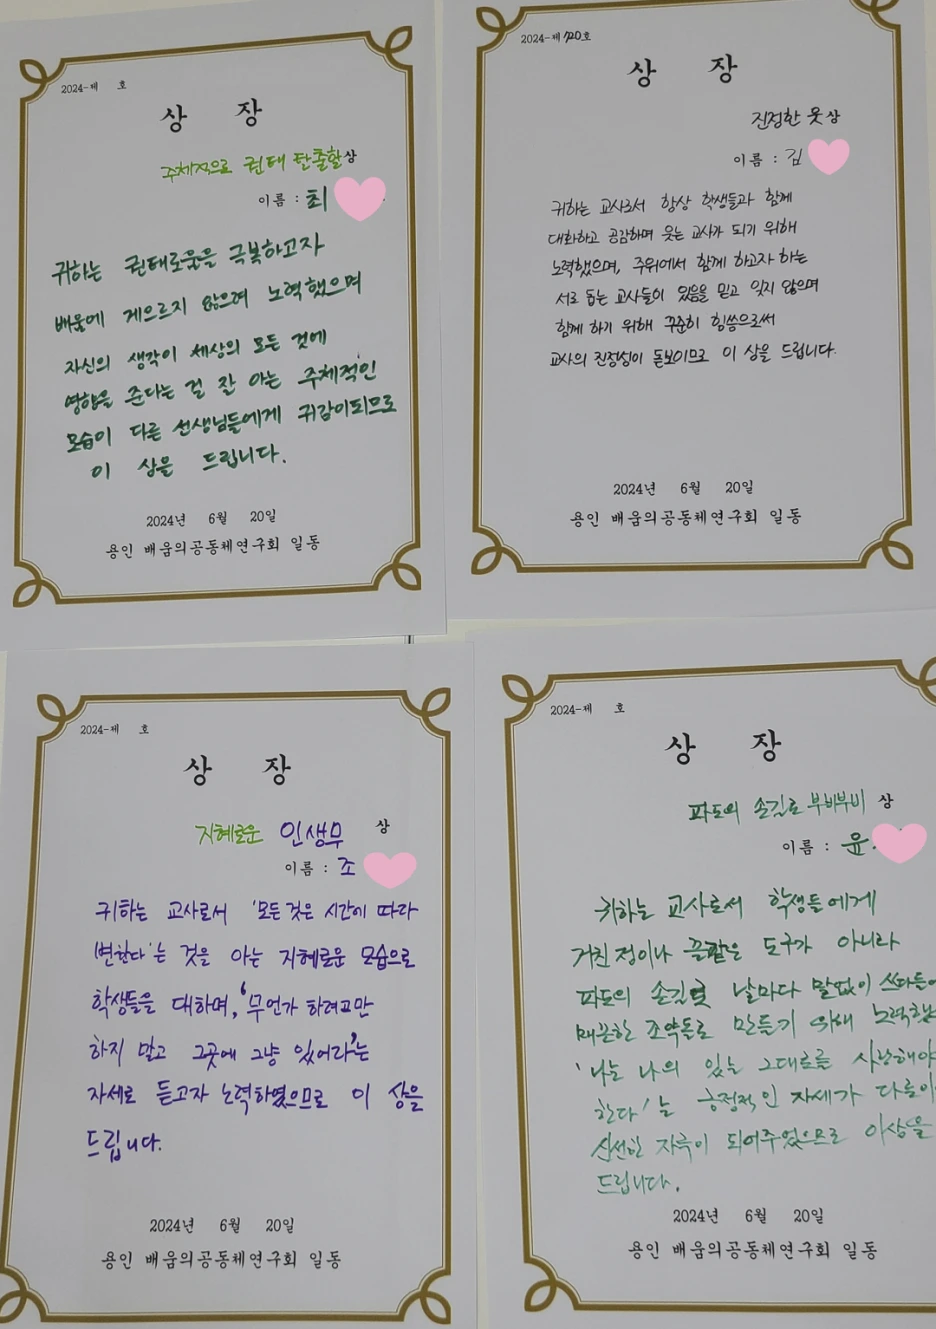 2024-제 호
상 장
주체적으로 권태 탈출할상
이름 : 최
귀하는 권태로움을 극복하고자
배움에 게으르지 않으려 노력했으며
자신의 생각이 세상의 모든 것에
영향을 준다는 걸 잘 아는 주체적인
모습이 다른 선생님들에게 귀감이되므로
이 상을 드립니다.
2024년 6월 20일
용인 배움의공동체연구회 일동
2024-제 120호
상 장
진정한 웃상
이름 : 김
귀하는 교사로서 항상 학생들과 함께
대화하고 공감하며 웃는 교사가 되기 위해
노력했으며, 주위에서 함께 하고자 하는
서로 돕는 교사들이 있음을 믿고 잊지 않으며
함께 하기 위해 꾸준히 힘씀으로써
교사의 진정성이 돋보이므로 이 상을 드립니다.
2024년 6월 20일
용인 배움의공동체연구회 일동
2024-제 호
상 장
지혜로운 인생무 상
이름 : 조
귀하는 교사로서 '모든것은 시간에 따라
변한다'는 것을 아는 지혜로운 모습으로
학생들을 대하며, '무언가 하려고만
하지 말고 그곳에 그냥 있어라'는
자세로 듣고자 노력하였으므로 이 상을
드립니다.
2024년 6월 20일
용인 배움의공동체연구회 일동
2024-제 호
상 장
파도의 손길로 부비부비 상
이름 : 윤
귀하는 교사로서 학생들에게
거친 정이나 끌같은 도구가 아니라
파도의 손길로 날마다 말없이 쓰다듬어
매끈한 조약돌로 만들기 위해 노력했
'나는 나의 있는 그대로를 사랑해야
한다'는 긍정적인 자세가 다른이
신선한 자극이 되어주었으므로 이상을
드립니다.
2024년 6월 20일
용인 배움의공동체연구회 일동